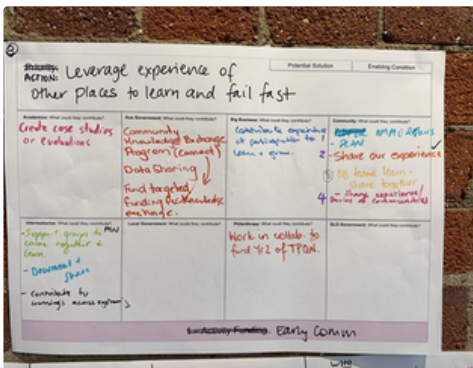 Potential Solution
Enabling Condition
Priority:
ACTION: Leverage experience of
other places to learn and fail fast
Academics: What could they contribute?
Create case studies
or evaluations
Government: What could they contribute?
Community
Knowledge Exchange
Program (connect)
Data Sharing
Fund targeted/
funding for knowledge
exchange.
Big Business: What could they contribute?
Contribute expertise
learn + grow.
Community: What could they contribute?
PLAN
2 - Share our experience
learn +
share together
4 - Share experience/
Intermediaries: What could they contribute?
- Support groups to
come together &
learn.
- Document +
Share
- Contribute to
learnings across
Local Government: What could they contribute?
Philanthropy: What could they contribute?
Work in collab. to
fund Yr2 of
QLD Government: What could they contribute?
Activity Funding. Early Comm
WHO